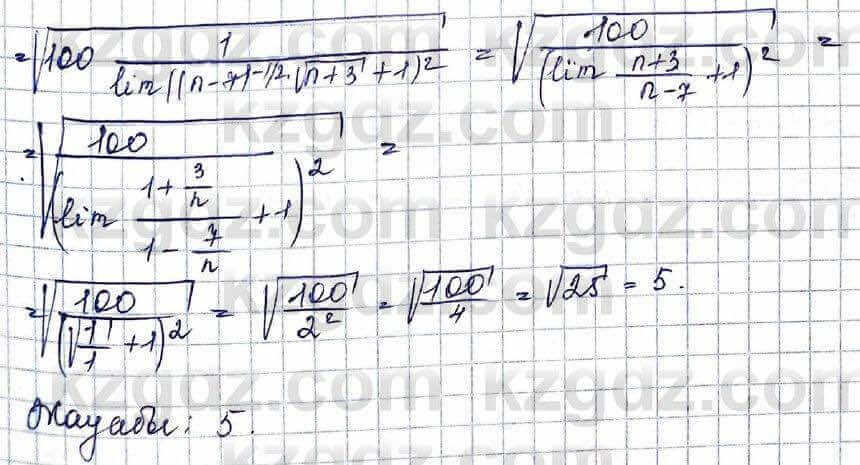 = √(100 1/(lim((n-7)^(-1/2)·√(n+3) + 1)²)) = √(100/(lim (n+3)/(n-7) + 1)²) =
= √(100/(lim (1 + 3/n)/(1 - 7/n) + 1)²) =
= √(100/(√(1/1) + 1)²) = √(100/2²) = √(100/4) = √25 = 5.
Жауабы: 5.
kzgdz.com